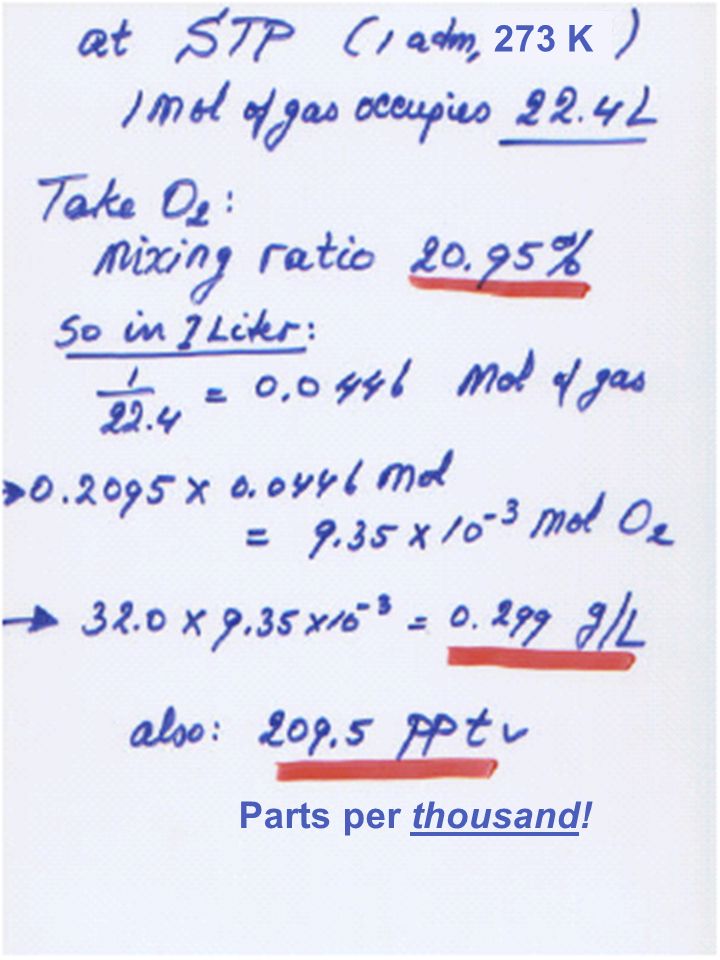 at STP (1 adm, 273 K )
1 mol of gas occupies 22.4 L
Take O₂:
Mixing ratio 20.95%
So in 1 Liter:
1/22.4 = 0.0446 Mol of gas
→ 0.2095 x 0.0446 mol
= 9.35 x 10⁻³ mol O₂
→ 32.0 x 9.35 x 10⁻³ = 0.299 g/L
also: 209.5 pptv
Parts per thousand!